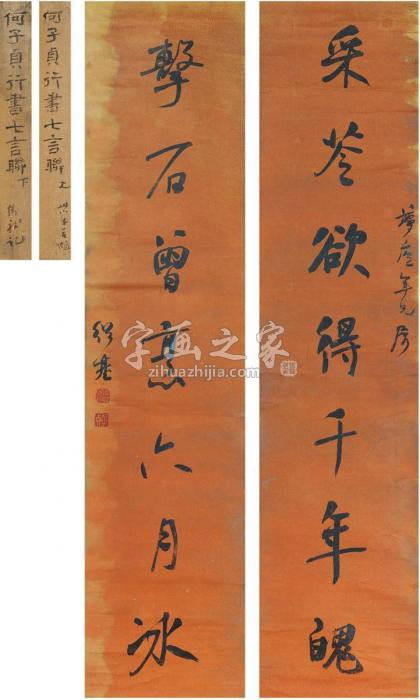 夢廬年兄屬
采苓欲得千年魄
擊石曾六月冰
紹基
何子貞行書七言聯 上
何子貞行書七言聯 下
字画之家
zihuazhijia.com